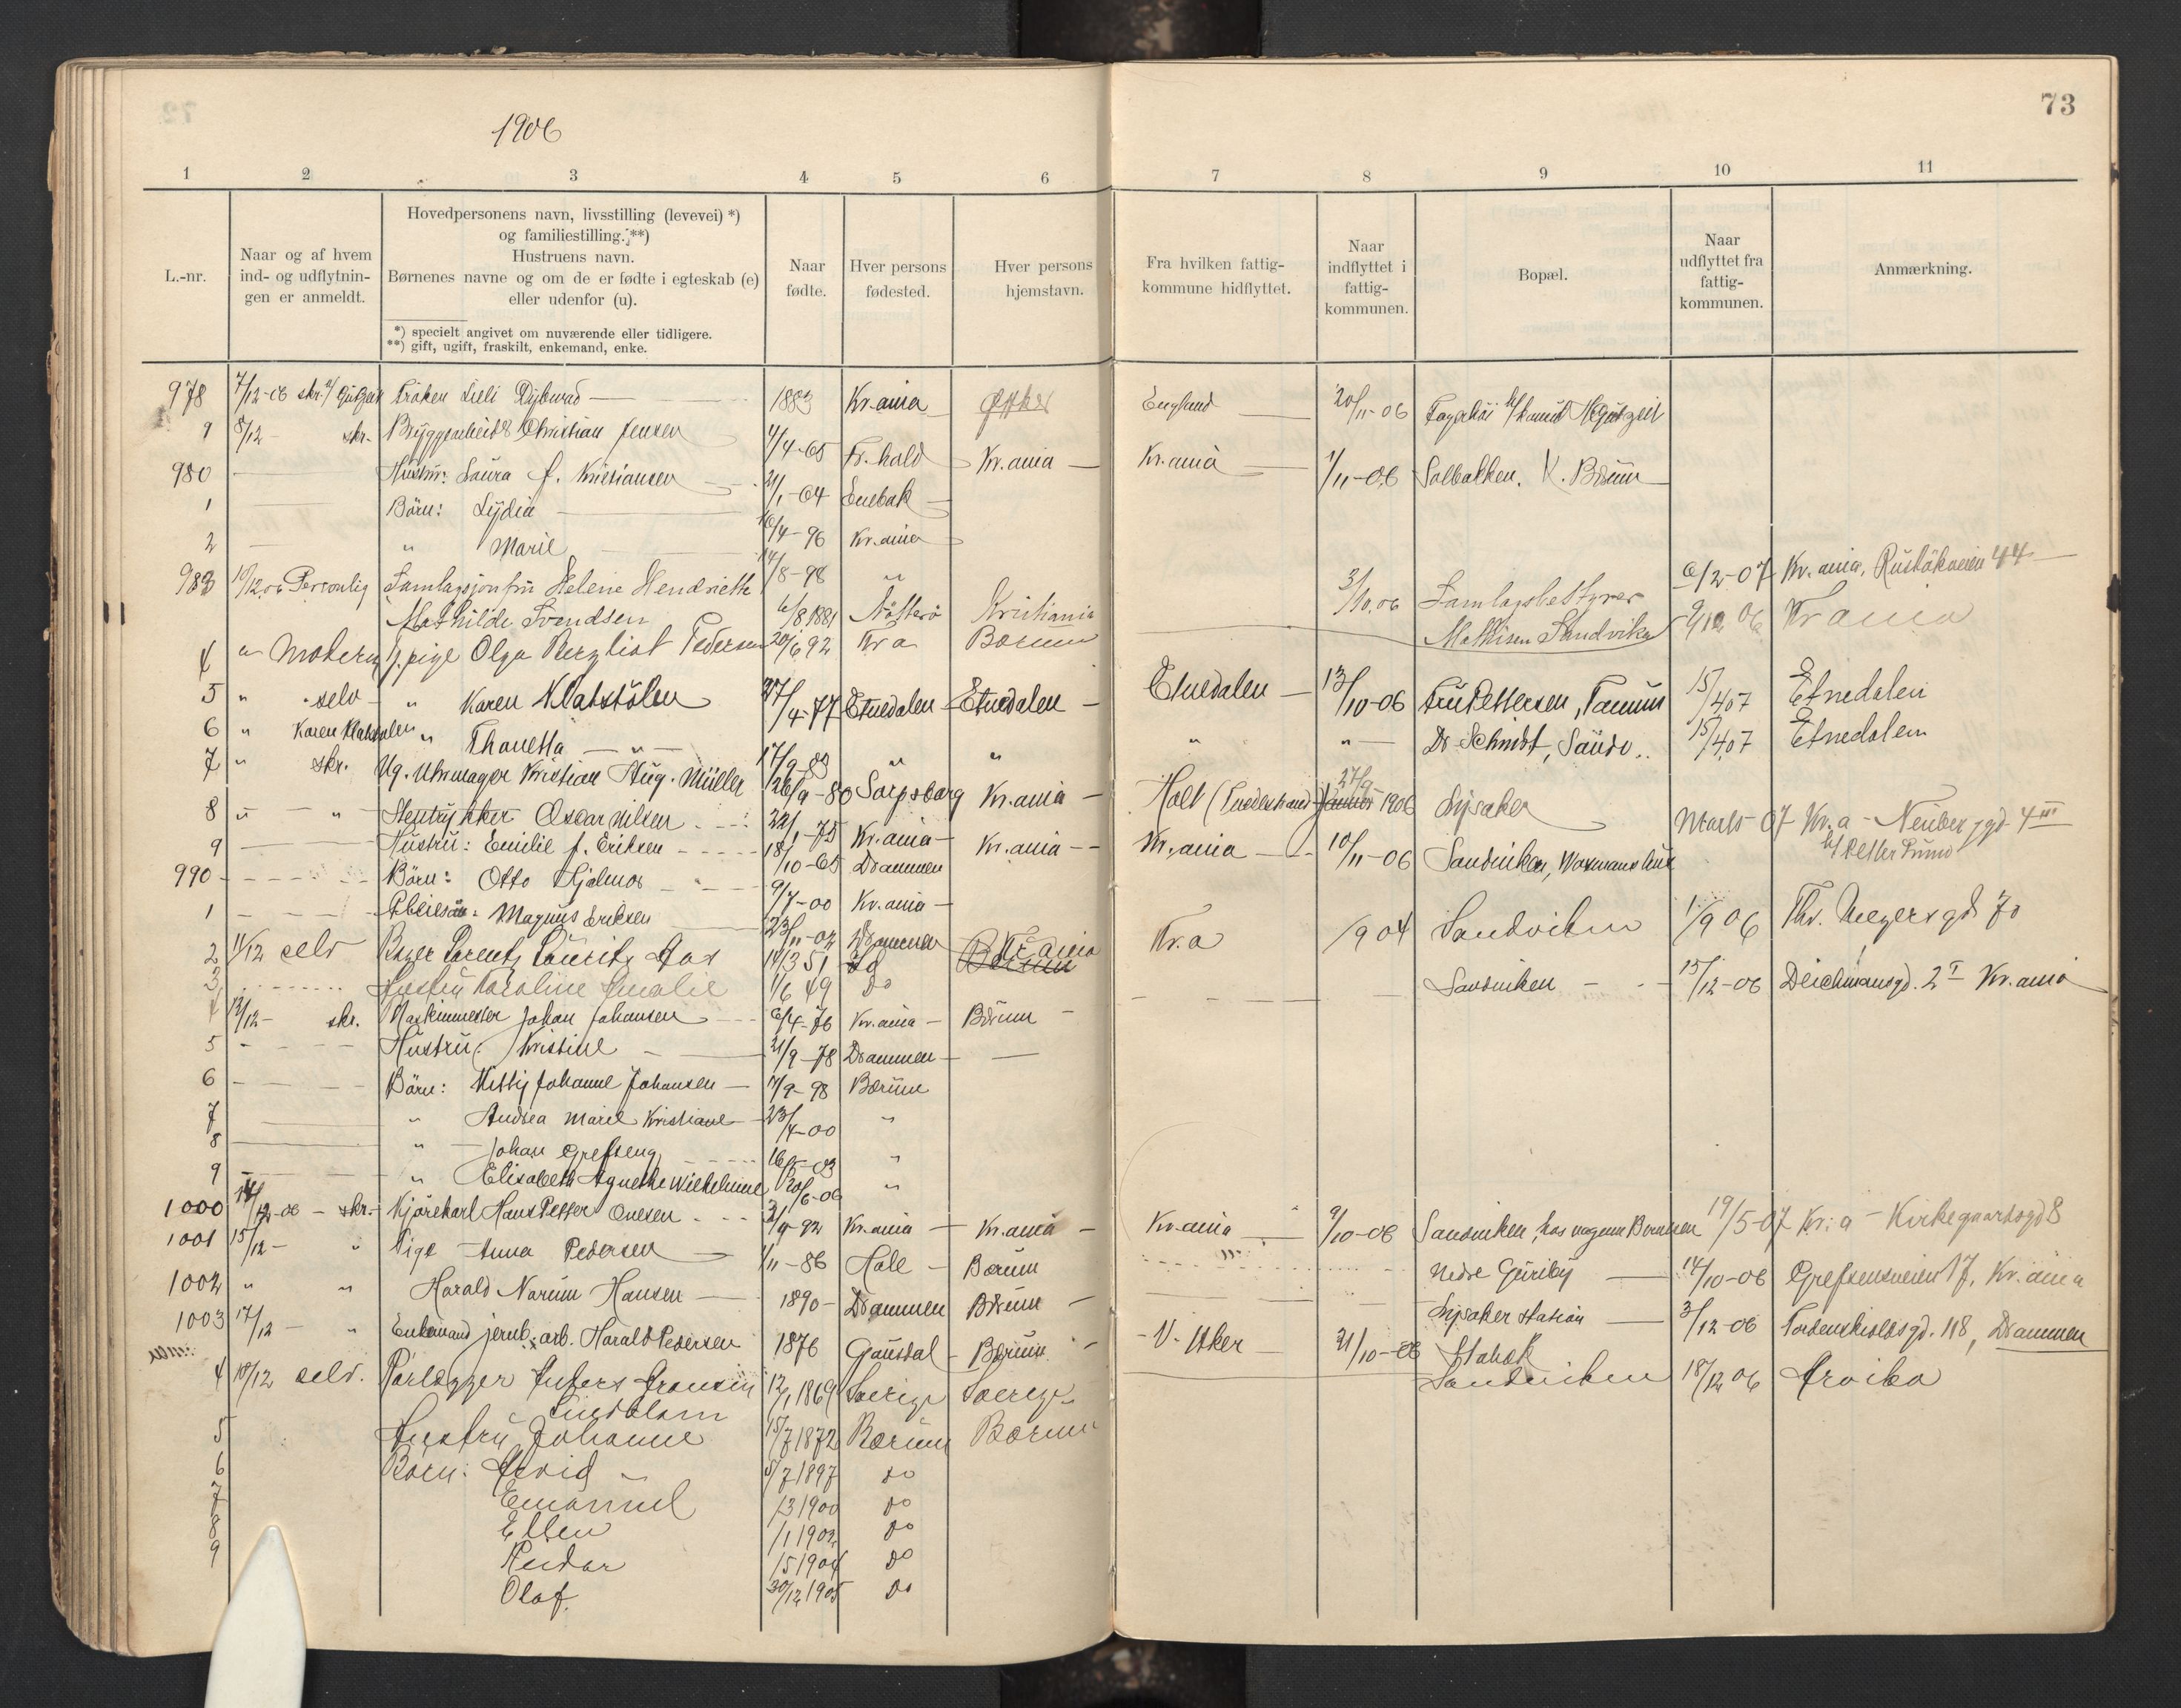 73
1906
1 2 3 4 5 6 7 8 9 10 11
L.-nr.
Naar og af hvem
ind- og udflytnin-
gen er anmeldt.
Hovedpersonens navn, livsstilling (levevei) *)
og familiestilling. **)
Hustruens navn.
Børnenes navne og om de er fødte i egteskab (e)
eller udenfor (u).
*) specielt angivet om nuværende eller tidligere.
**) gift, ugift, fraskilt, enkemand, enke.
Naar
fødte.
Hver persons
fødested.
Hver persons
hjemstavn.
Fra hvilken fattig-
kommune hidflyttet.
Naar
indflyttet i
fattig-
kommunen.
Bopæl.
Naar
udflyttet fra
fattig-
kommunen.
Anmærkning.
978 7/12-06 skr. Frøken Lieli 1883 Kr.ania England 20/11-06
9 8/12 skr. Christian Jensen 4/4-65 Fr.hald Kr.ania Kr.ania 1/11-06 Solbakken. V. Bærum
980 Hustru: Laura f. Kristiansen 21/1-64 Enebak
1 Børn: Lydia 16/4-96 Kr.ania
2 " Marie 14/8-98 "
983 10/12.06 Personlig Samlagsjomfru Helene Hendriette 6/8 1881 Nøtterø Kristiania 3/10.06 Samlagsbestyrer 6/2-07 Kr.ania, Rusløkveien 44
Mathilde Svendsen Mathisen Sandvika 9/12 06 Kr ania
4 " Moderen pige Olga Bergliot Pedersen 20/6 92 Kr a Bærum
5 " selv " Karen Klatstølen 27/4-77 Etnedalen Etnedalen Etnedalen 13/10-06 Fru Pettersen, Tanum 15/4 07 Etnedalen
6 " Karen Klatstølen " Thonetta " 17/9-83 " " " " Dr Schmidt, Sandv.. 15/4 07 Etnedalen
7 " skr. Ug. Uhrmager Kristian Aug. Müller 26/9-80 Sarpsborg Kr.ania Holt (Tvedestrand) 27/9 Januar 1906 Lysaker
8 " " Stentrykker Oscar Nilsen 22/1-75 Kr.ania Kr.ania Kr.ania 10/11-06 Sandviken, Marts 07 Kr.a - Neuberggd 4 III
9 Hustru: Emilie f. Eriksen 18/10-65 Drammen
990 Børn: Otto Hjalmar 9/7-00 Kr.ania
1 Pleiesøn: Magnus Eriksen 23/11-02 Drammen
2 11/12 selv Bager Lorentz Lauritz Aas 14/3 51 Kr.ania Bærum Kr.a /9 04 Sandviken 1/9 06 Thv. Meyersgd 70
3 Hustru Karoline Amalie 1/6 49 do
4 12/12- skr. Maskinmester Johan Johansen 6/4-76 Kr.ania Bærum Sandviken 15/12-06 Deichmansgd. 2 I Kr.ania
5 Hustru: Kristine 21/9-78 Drammen
6 Børn: Kitty Johanne Johansen 7/9-98 Bærum
7 " Andrea Marie Kristiane 23/4-00 "
8 " Johan Grefseng "
9 " Elisabeth Agnethe Wilhelmine 20/6-06 "
1000 14/12-06 skr. Kjørekarl Hans Petter Olsen 2/9-92 Kr.ania Kr.ania Kr.ania 9/10-06 Sandviken, hos vognm Berntsen 19/5-07 Kr.a - Kirkegaardsgd 8
1001 15/12 " Pige Anna Pedersen 1/11-86 Hole Bærum Nedre Gjøriby 14/10-06 Grefsensveien 17, Kr.ania
1002 " " Harald Narum Hansen 1890 Drammen Bærum Lysaker station 3/12-06 Tordenskioldsgd. 118, Drammen
1003 17/12 " Enkemand jernb. arb. Harald Pedersen 1876 Gausdal Bærum V. Aker 31/10-06 Stabæk
4 18/12 selv. Rørlægger Anders Fransin 12/1 1869 Sverige Sverige Sandviken 18/12 06 Arvika
Lindblom
5 Hustru Johanne 15/7 1872 Bærum Bærum
6 Børn: Arvid 5/7 1897 do
7 Emanuel /3 1900 do
8 Ellen /1 1902 do
9 Reidar /5 1904 do
Olaf. 30/12 1905 do